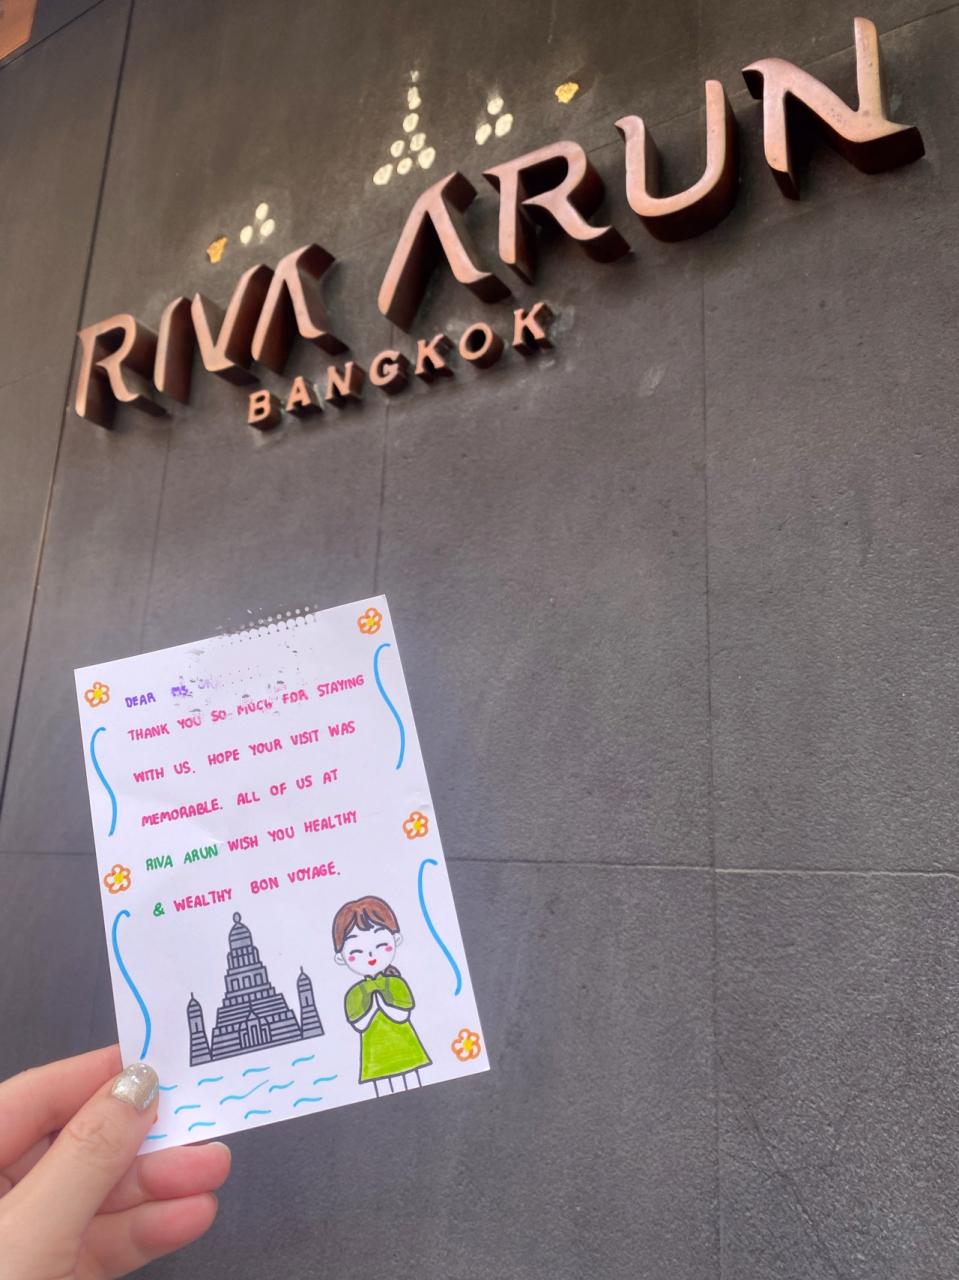 RIVA ARUN
BANGKOK
DEAR MS.
THANK YOU SO MUCH FOR STAYING
WITH US. HOPE YOUR VISIT WAS
MEMORABLE. ALL OF US AT
RIVA ARUN WISH YOU HEALTHY
& WEALTHY BON VOYAGE.